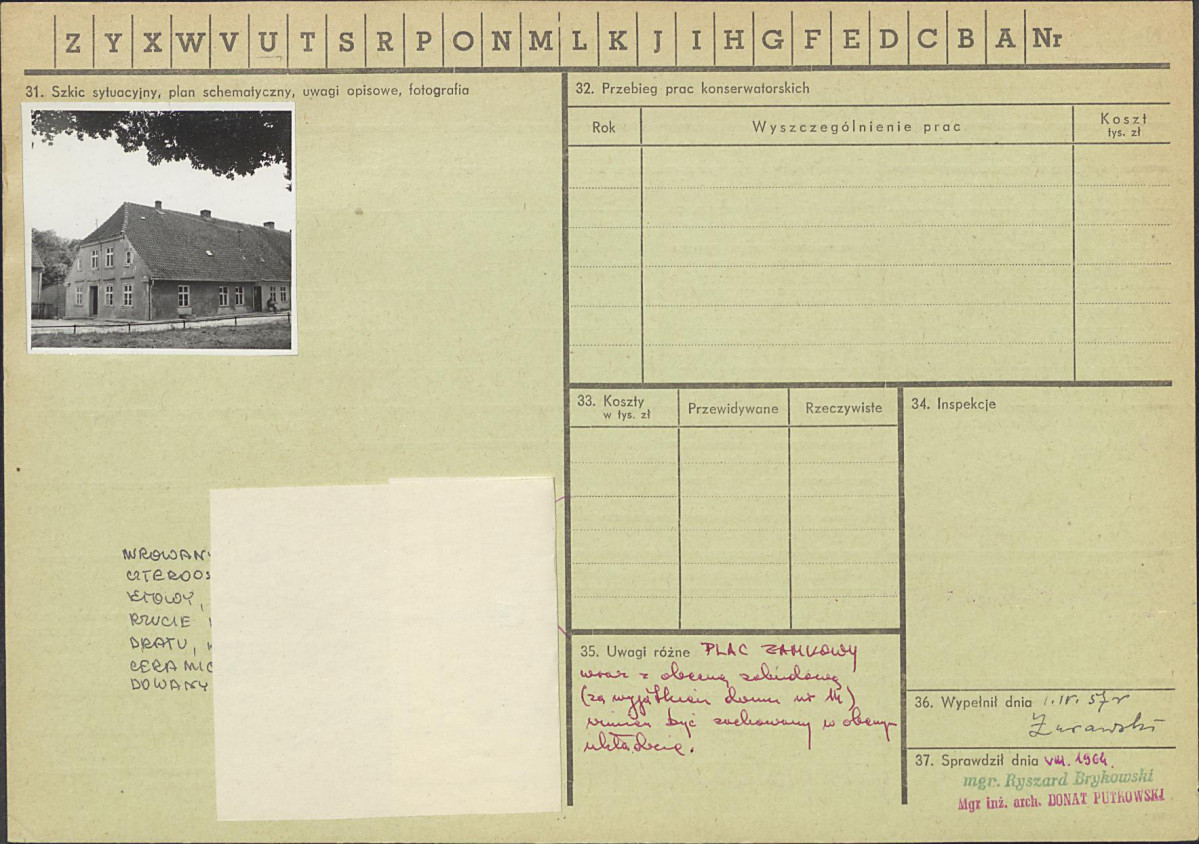 Z Y X W V U T S R P O N M L K J I H G F E D C B A Nr
31. Szkic sytuacyjny, plan schematyczny, uwagi opisowe, fotografia
MUROWANY
CZTEROOS
RZUCIE
DRATU,
CERAMIC
DOWANY
32. Przebieg prac konserwatorskich
Rok
Wyszczególnienie prac
Koszt
tys. zł
33. Koszty
w tys. zł
Przewidywane
Rzeczywiste
34. Inspekcje
35. Uwagi różne PLAC ZAMKOWY
wraz z obecną zabudową
(za wyjątkiem domu nr 14)
winien być zachowany w obecnym
układzie.
36. Wypełnił dnia 1.IV.57r
Żurawski
37. Sprawdził dnia VIII.1964.
mgr. Ryszard Brykowski
Mgr inż. arch. DONAT PUTKOWSKI